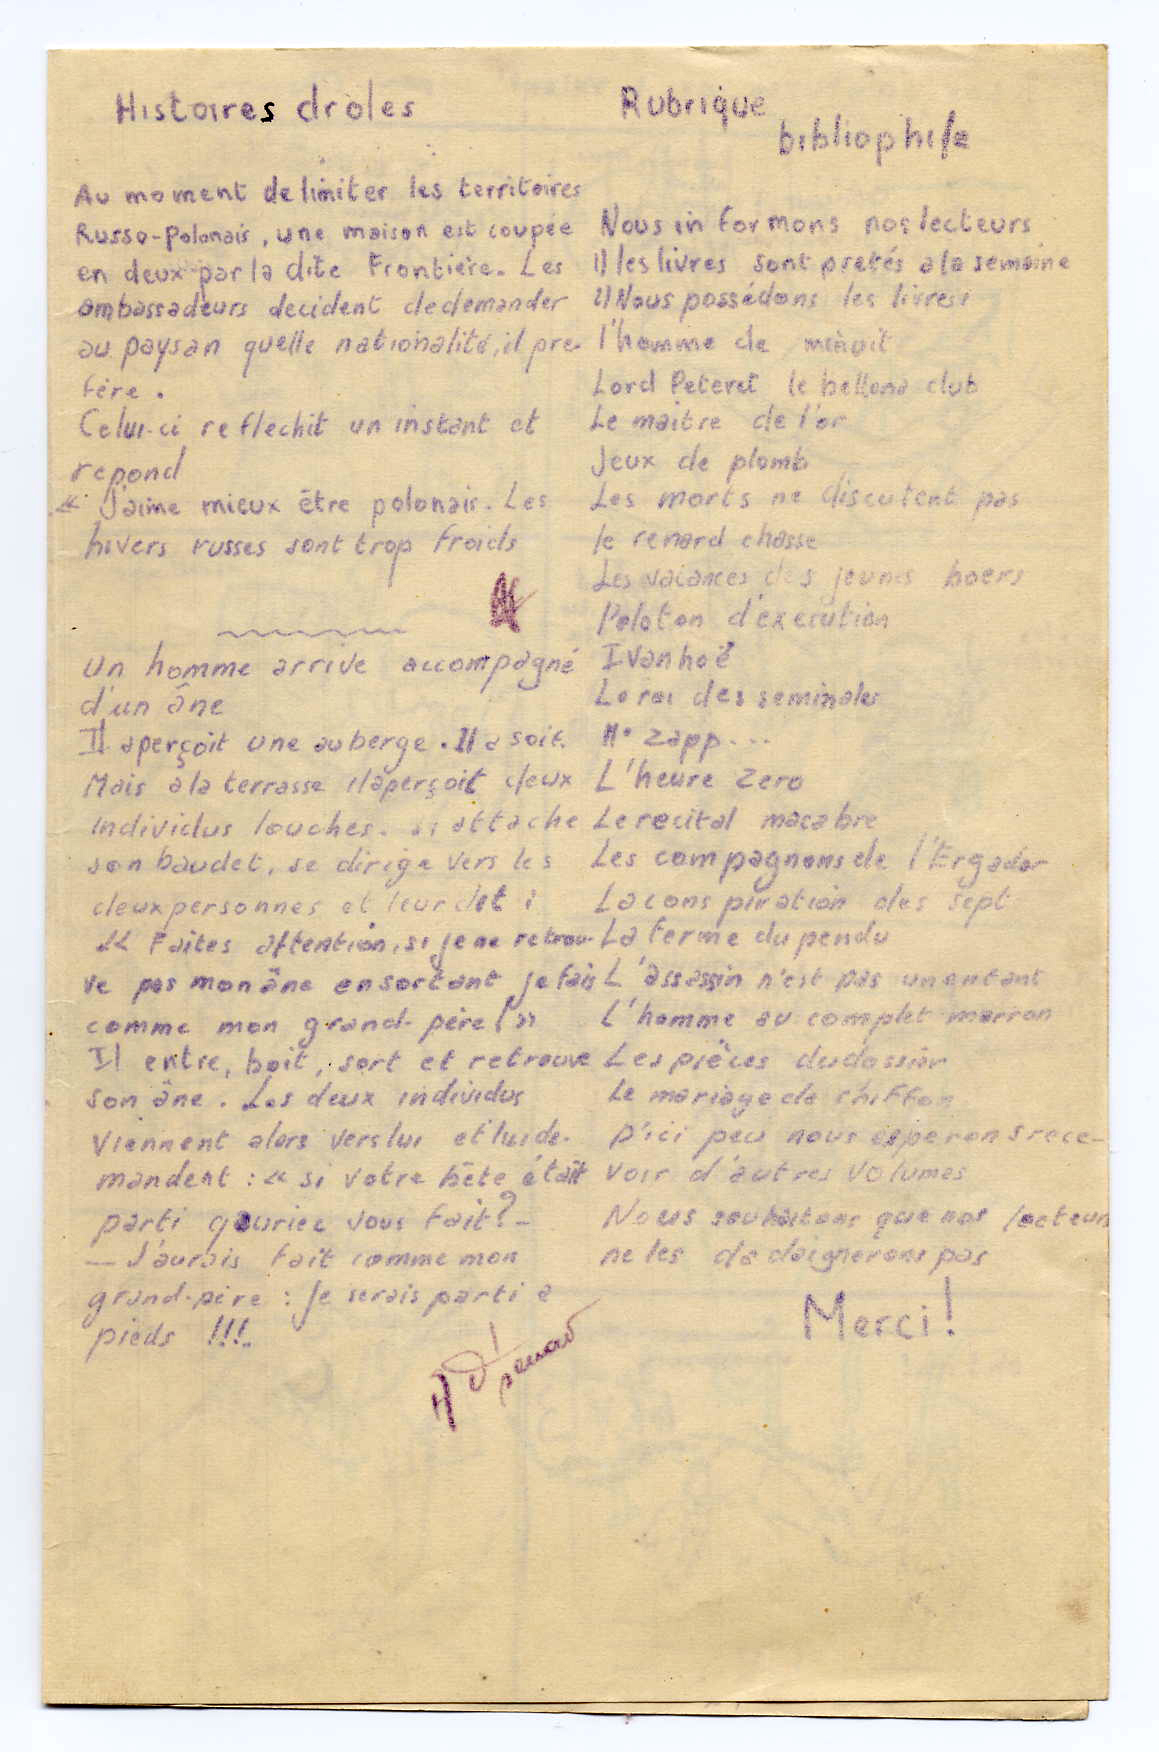 Histoires drôles
Au moment de limiter les territoires
Russo-Polonais, une maison est coupée
en deux par la dite Frontière. Les
ambassadeurs decident de demander
au paysan quelle nationalité, il pre-
fère.
Celui-ci reflechit un instant et
repond
« J'aime mieux être polonais. Les
hivers russes sont trop froids
Un homme arrive accompagné
d'un âne
Il aperçoit une auberge. Il a soif.
Mais a la terrasse il aperçoit deux
individus louches. attache
son baudet, se dirige vers les
deux personnes et leur dit :
« Faites attention, si je ne retrou-
ve pas mon âne en sortant je fais
comme mon grand-père ! »
Il entre, boit, sort et retrouve
son âne. Les deux individus
viennent alors vers lui et lui de-
mandent : « si votre bête était
parti qouriec vous fait ? -
— J'aurais fait comme mon
grand-père : je serais parti a
pieds !!!.
Rubrique
bibliophile
Nous informons nos lecteurs
1) les livres sont pretés a la semaine
2) Nous possédons les livres :
l'homme de minuit
Lord Peter et le bellona club
Le maitre de l'or
Jeux de plomb
Les morts ne discutent pas
le renard chasse
Les vacances des jeunes boers
Peloton d'execution
Ivanhoë
Le roi des seminoles
Mr zapp...
L'heure zero
Le recital macabre
Les compagnons de l'Ergador
La conspiration des sept
La ferme du pendu
L'assassin n'est pas un enfant
L'homme au complet marron
Les pièces du dossier
Le mariage de chiffon
D'ici peu nous esperons rece-
voir d'autres volumes
Nous souhaitons que nos lecteurs
ne les dedaignerons pas
Merci !